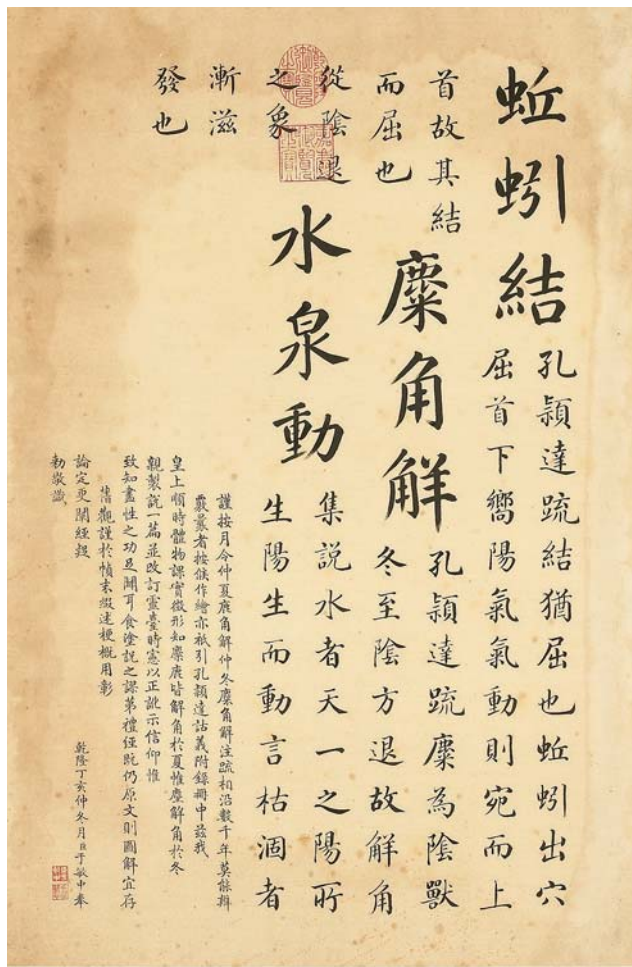 蚯蚓結
孔頴達疏結猶屈也蚯蚓出穴
屈首下嚮陽氣氣動則宛而上
首故其結
而屈也
麋角解
孔頴達疏麋為陰獸
冬至陰方退故解角
從陰退
之象
水泉動
集說水者天一之陽所
生陽生而動言枯涸者
漸滋
發也
謹按月令仲夏鹿角解仲冬麋角解注疏相沿數千年莫能辨
覈曩者按候作繪亦祇引孔頴達詁義附錄冊中茲我
皇上順時體物課實徵形知麋鹿皆解角於夏惟麈解角於冬
親製說一篇並改訂靈臺時憲以正訛示信仰惟
致知盡性之功足闢耳食塗說之謬第禮經既仍原文則圖解宜存
舊觀謹於幀末綴述梗概用彰
論定更闡經
乾隆丁亥仲冬月臣于敏中奉
勑敬識